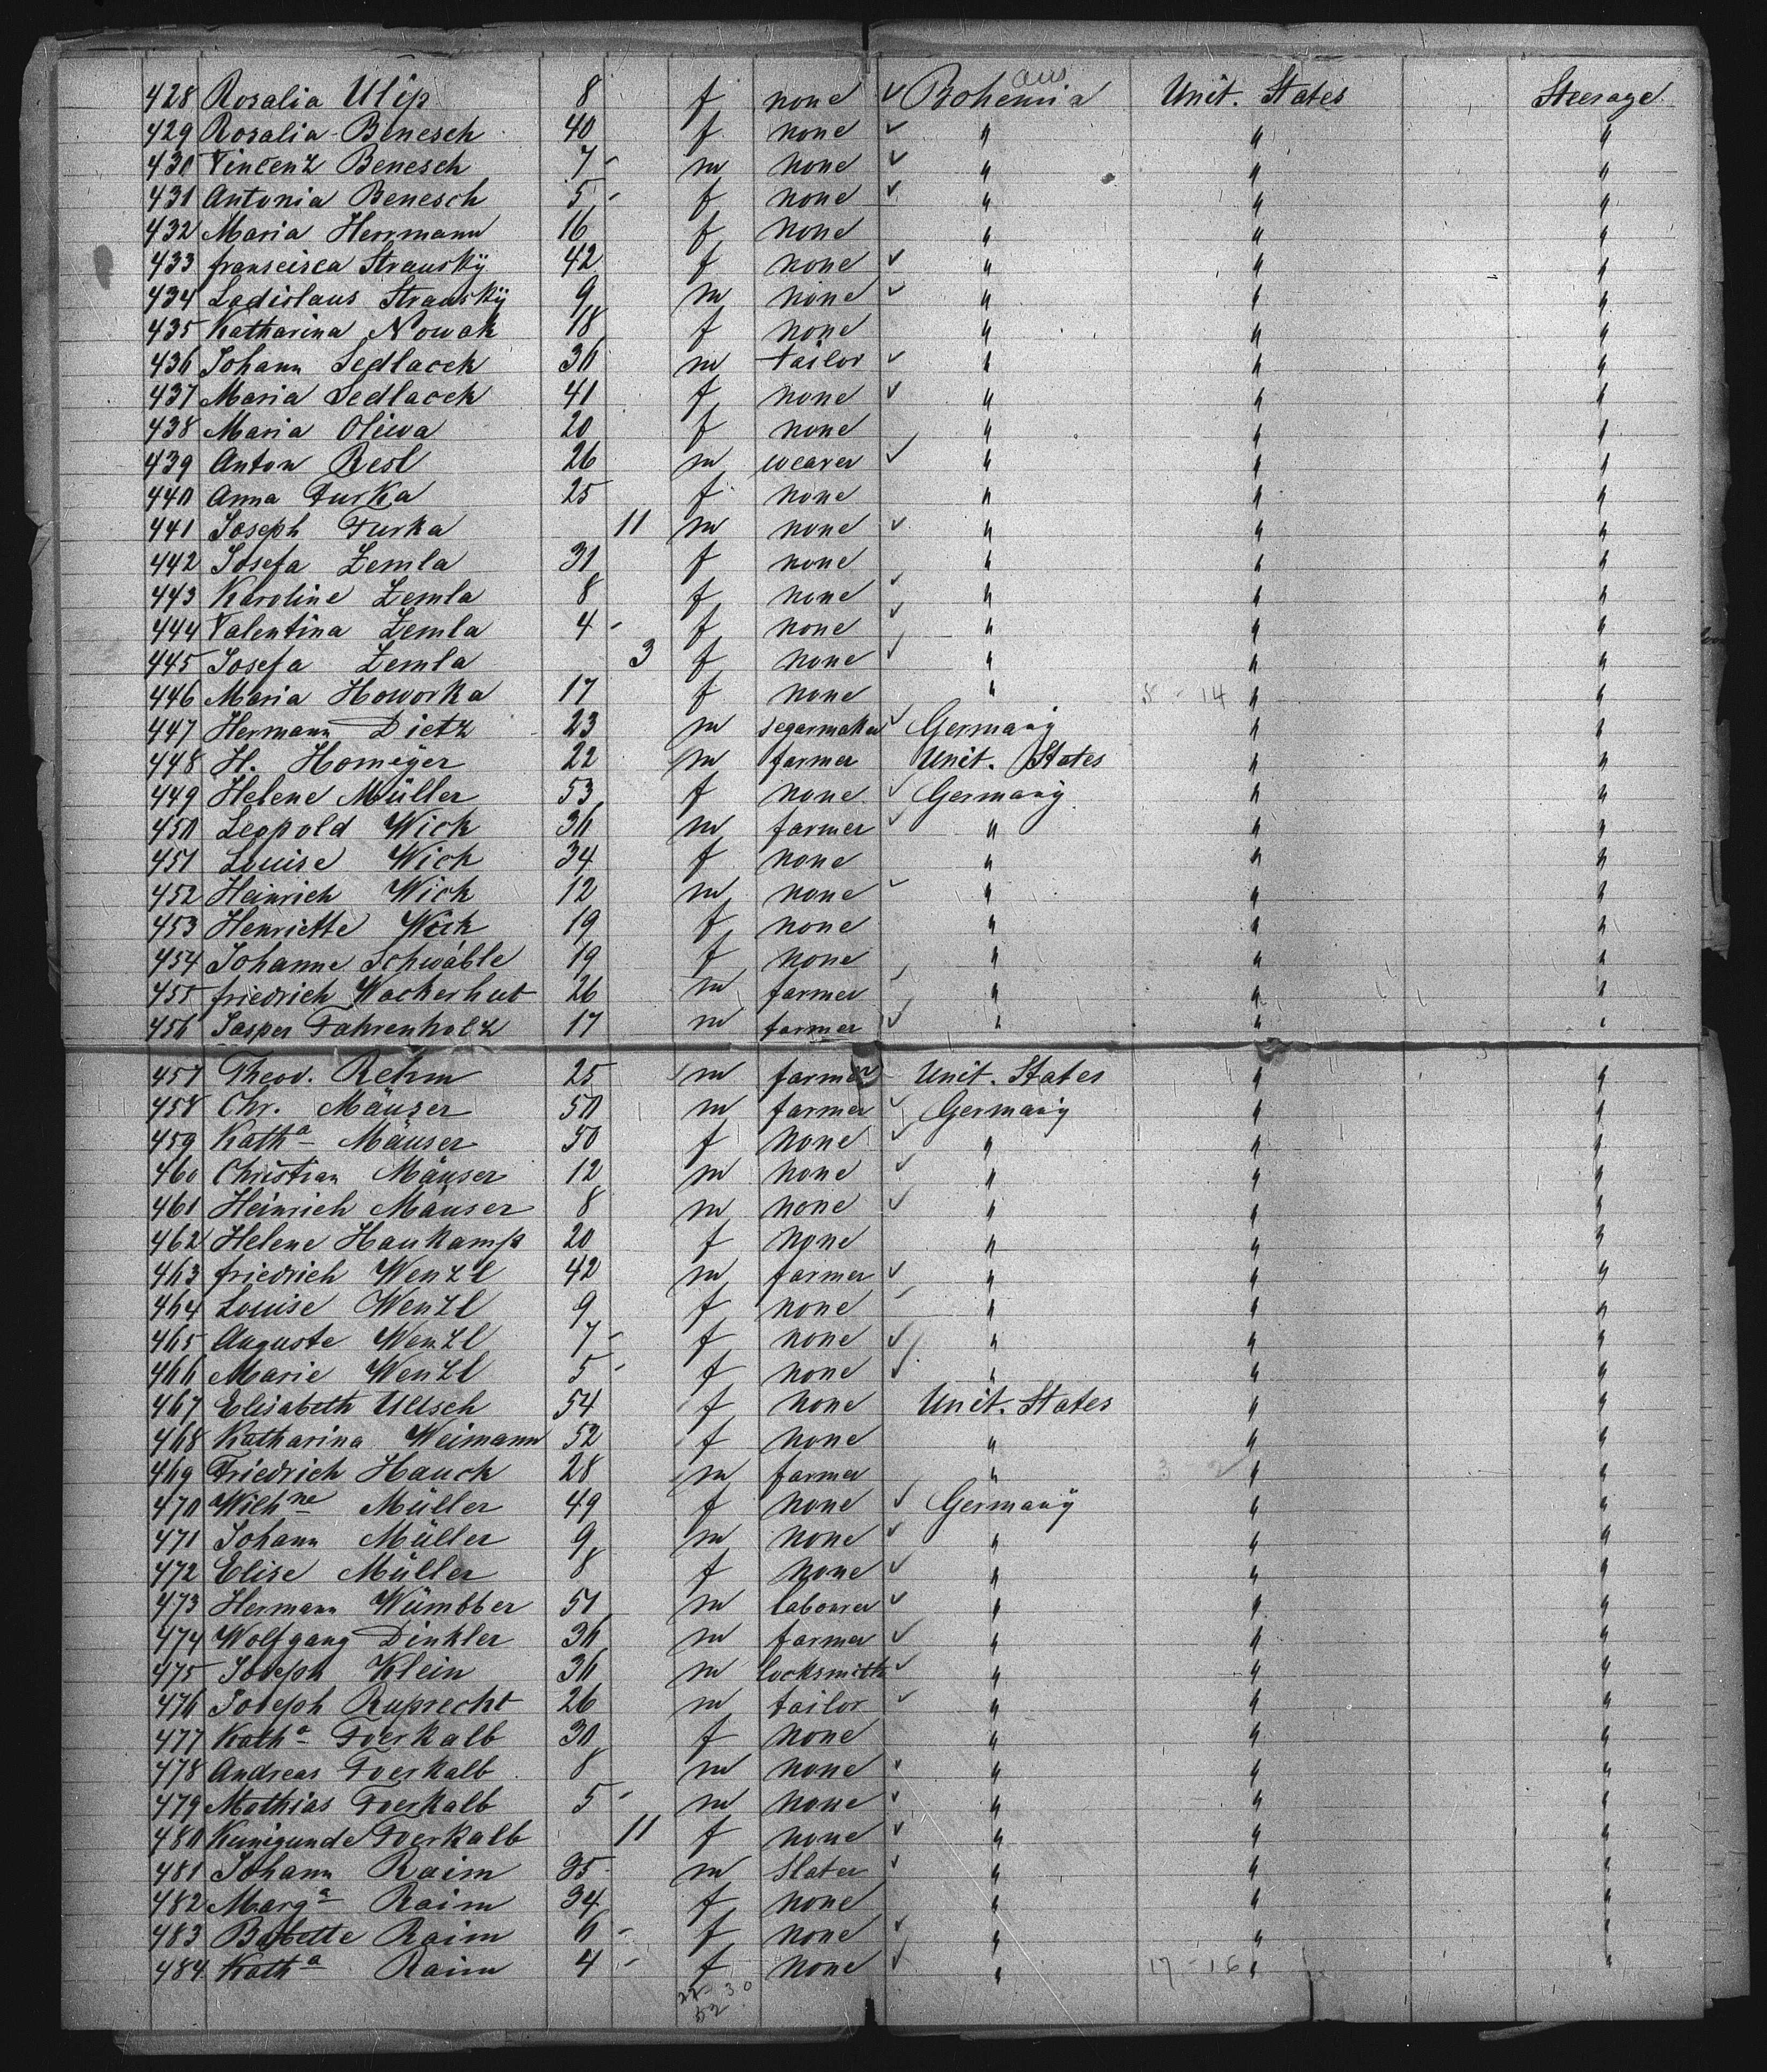 aus
428 Rosalia Ulip 8 f none ✓ Bohemia Unit. States Steerage
429 Rosalia Benesch 40 f none ✓ " " "
430 Vincenz Benesch 7 - m none ✓ " " "
431 Antonia Benesch 5 - f none ✓ " " "
432 Maria Herrmann 16 f none " " "
433 franscisca Straüsky 42 f none ✓ " " "
434 Ladislaus Stransky 9 m none ✓ " " "
435 Katharina Nowak 18 f none " " "
436 Johann Sedlacek 36 m tailor ✓ " " "
437 Maria Sedlacek 41 f none ✓ " " "
438 Maria Oliva 20 f none " " "
439 Anton Resl 26 m weaver ✓ " " "
440 Anna Turka 25 f none " " "
441 Joseph Turka 11 m none ✓ " " "
442 Josefa Zemla 31 f none " " "
443 Karoline Zemla 8 f none ✓ " " "
444 Valentina Zemla 4 - f none ✓ " " "
445 Josefa Zemla 3 f none ✓ " " "
446 Maria Howorka 17 f none " 8 - 14 " "
447 Hermann Dietz 23 m segarmaker ✓ Germany " "
448 H. Homeyer 22 m farmer Unit. States " "
449 Helene Müller 53 f none ✓ Germany " "
450 Leopold Wick 36 m farmer ✓ " " "
451 Louise Wick 34 f none " " "
452 Heinrich Wick 12 m none ✓ " " "
453 Henriette Wick 19 f none " " "
454 Johanne Schwäble 19 f none " " "
455 friedrich Wackerhut 26 m farmer ✓ " " "
456 Jasper Fahrenholz 17 m farmer ✓ " " "
457 Theod. Rehm 25 m farmer Unit. States " "
458 Chr. Mäuser 50 m farmer ✓ Germany " "
459 Katha Mäuser 50 f none ✓ " " "
460 Christian Mäuser 12 m none ✓ " " "
461 Heinrich Mäuser 8 m none ✓ " " "
462 Helene Haukamp 20 f none " " "
463 friedrich Wenzl 42 m farmer ✓ " " "
464 Louise Wenzl 9 f none ✓ " " "
465 Auguste Wenzl 7 - f none ✓ " " "
466 Marie Wenzl 5 - f none ✓ " " "
467 Elisabeth Ullsch 54 f none Unit. States " "
468 Katharina Weimann 52 f none " " "
469 Friedrich Hauck 28 m farmer " " "
470 Wilhne Müller 49 f none ✓ Germany " "
471 Johann Müller 9 m none ✓ " " "
472 Elise Müller 8 f none ✓ " " "
473 Hermann Wümbber 51 m labourer ✓ " " "
474 Wolfgang Dinkler 36 m farmer ✓ " " "
475 Joseph Klein 36 m locksmith ✓ " " "
476 Joseph Ruprecht 26 m tailor ✓ " " "
477 Katha Foerkalb 30 f none " " "
478 Andreas Foerkalb 8 m none ✓ " " "
479 Mathias Foerkalb 5 - m none ✓ " " "
480 Kunigunde Foerkalb 11 f none ✓ " " "
481 Johann Raim 35 m slater ✓ " " "
482 Marga Raim 34 f none " " "
483 Babette Raim 6 - f none ✓ " " "
484 Katha Raim 4 - f none ✓ " 17 - 16 " "
22 30
52